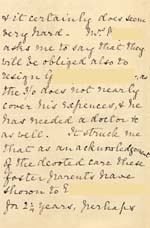 & it certainly does seem
very hard. Mrs P
asks me to say that they
will be obliged also to
resign G as
the 5/o does not nearly
cover his expences, & he
has needed a doctor to
as well. It struck me
that as an acknowledgement
of the devoted care these
foster parents have
shown to E
for 2½ years, perhaps